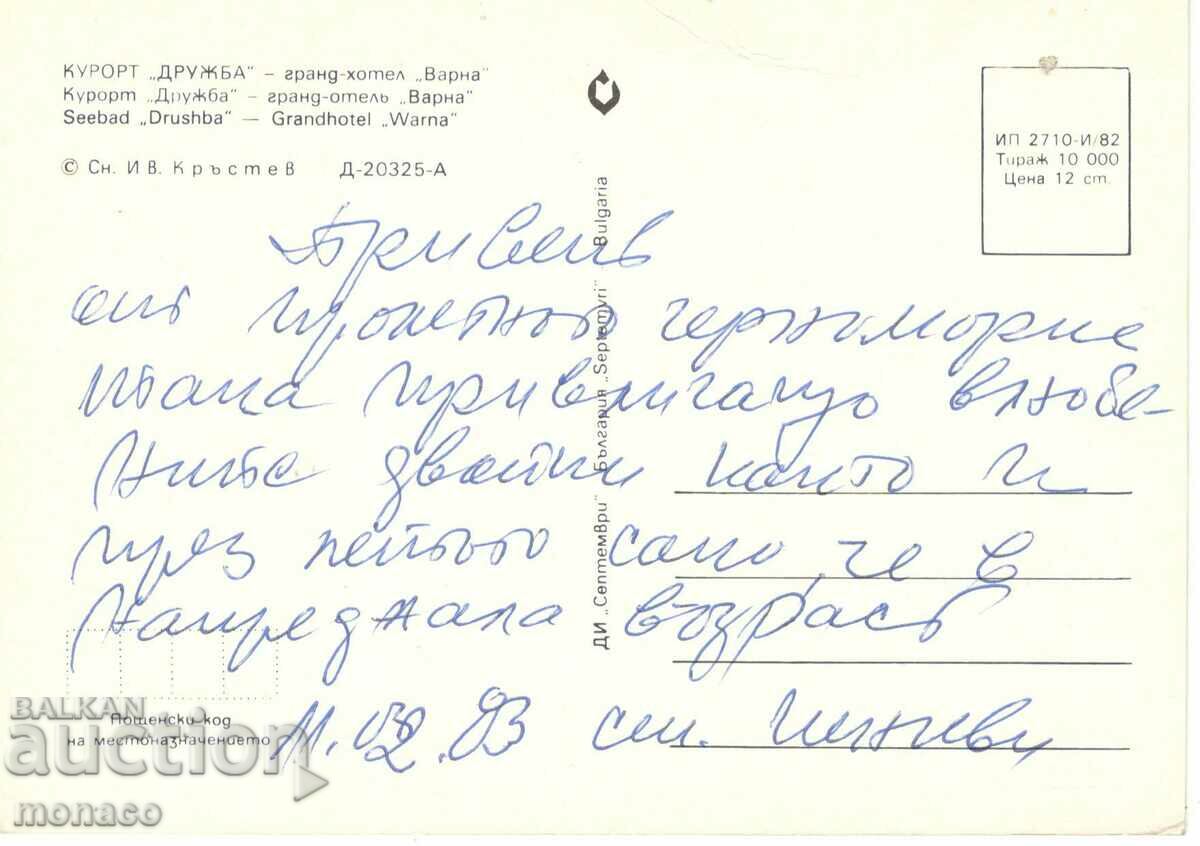 КУРОРТ „ДРУЖБА" – гранд-хотел „Варна"
Курорт „Дружба" – гранд-отель „Варна"
Seebad „Drushba" — Grandhotel „Warna"
© Сн. Ив. Кръстев Д-20325-А
ДИ „Септември" България „Septemvri" Bulgaria
ИП 2710-И/82
Тираж 10 000
Цена 12 ст.
от пролетното черноморие
така привличащо влюбе-
ните двойки както и
през лятото само, че в
напреднала възраст
11.02.93 сем.
Пощенски код
на местоназначението
BALKAN
auction
monaco